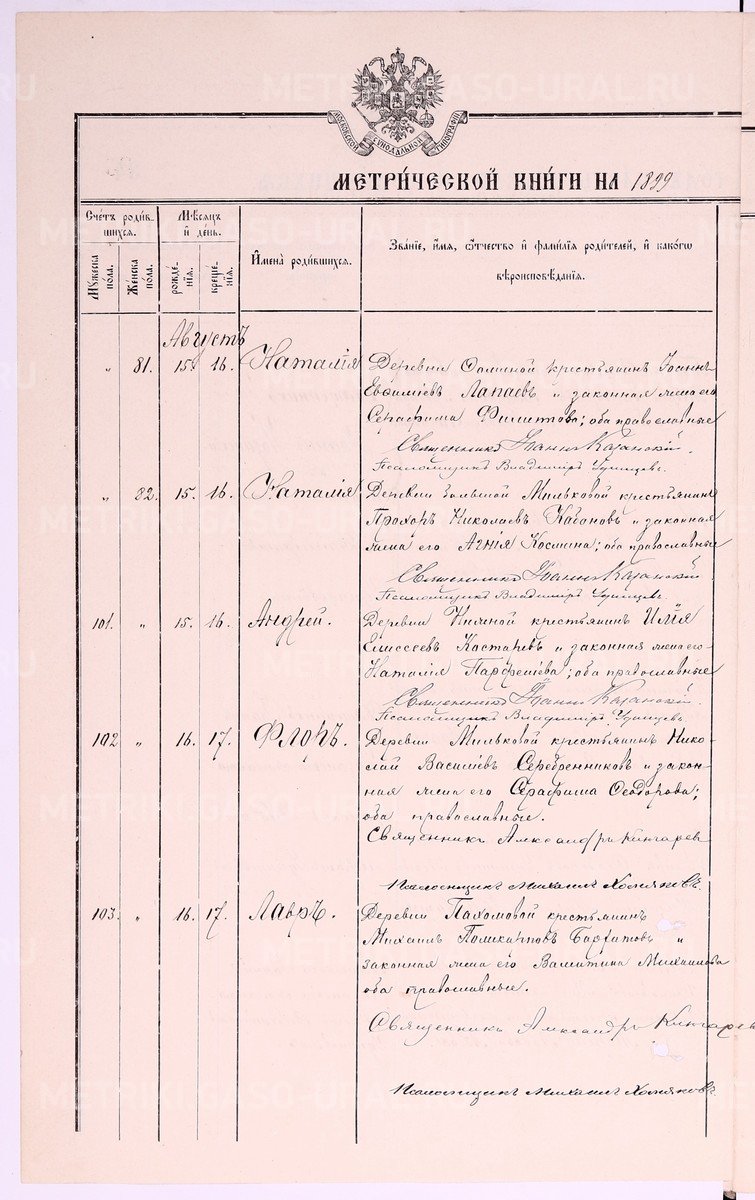 МОСКОВСКОЙ СѴНОДАЛЬНОЙ ТИПОГРАФІИ
МЕТРИ́ЧЕСКОЙ КНИ́ГИ НА 1899
Счетъ роди́вшихся.
Мѣсяцъ и день.
Имена̀ роди́вшихся.
Зва́ніе, и́мя, о́тчество и фами́лія роди́телей, и како́гѡ вѣроисповѣ́данія.
Мꙋ́жеска по́ла.
Же́нска по́ла.
рожде́нія.
креще́нія.
Августъ
„ 81. 15. 16. Наталія Деревни крестьянинъ Іоаннъ
Евѳиміевъ Лапаевъ и законная жена его
Серафима Филиппова; оба православные
Священникъ Іоаннъ Казанскій.
Псаломщикъ Владиміръ
„ 82. 15. 16. Наталія Деревни Большой Мильковой крестьянинъ
Прохоръ Николаевъ Кабановъ и законная
жена его Агнія Космина; оба православные
Священникъ Іоаннъ Казанскій.
Псаломщикъ Владиміръ
101. „ 15. 16. Андрей. Деревни крестьянинъ Илія
Елисеевъ Костаревъ и законная жена его
Наталія оба православные
Священникъ Іоаннъ Казанскій.
Псаломщикъ Владиміръ
102 „ 16. 17. Флоръ. Деревни Мильковой крестьянинъ Нико-
лай Василіевъ Серебренниковъ и закон-
ная жена его Серафима Ѳеодорова;
оба православные.
Священникъ Александръ Кинчаревъ
Псаломщикъ Михаилъ Хомяковъ.
103. „ 16. 17. Лавръ. Деревни Пахомовой крестьянинъ
Михаилъ Поликарповъ и
законная жена его Валентина Михаилова
оба православные.
Священникъ Александръ Кинчаревъ
Псаломщикъ Михаилъ Хомяковъ.